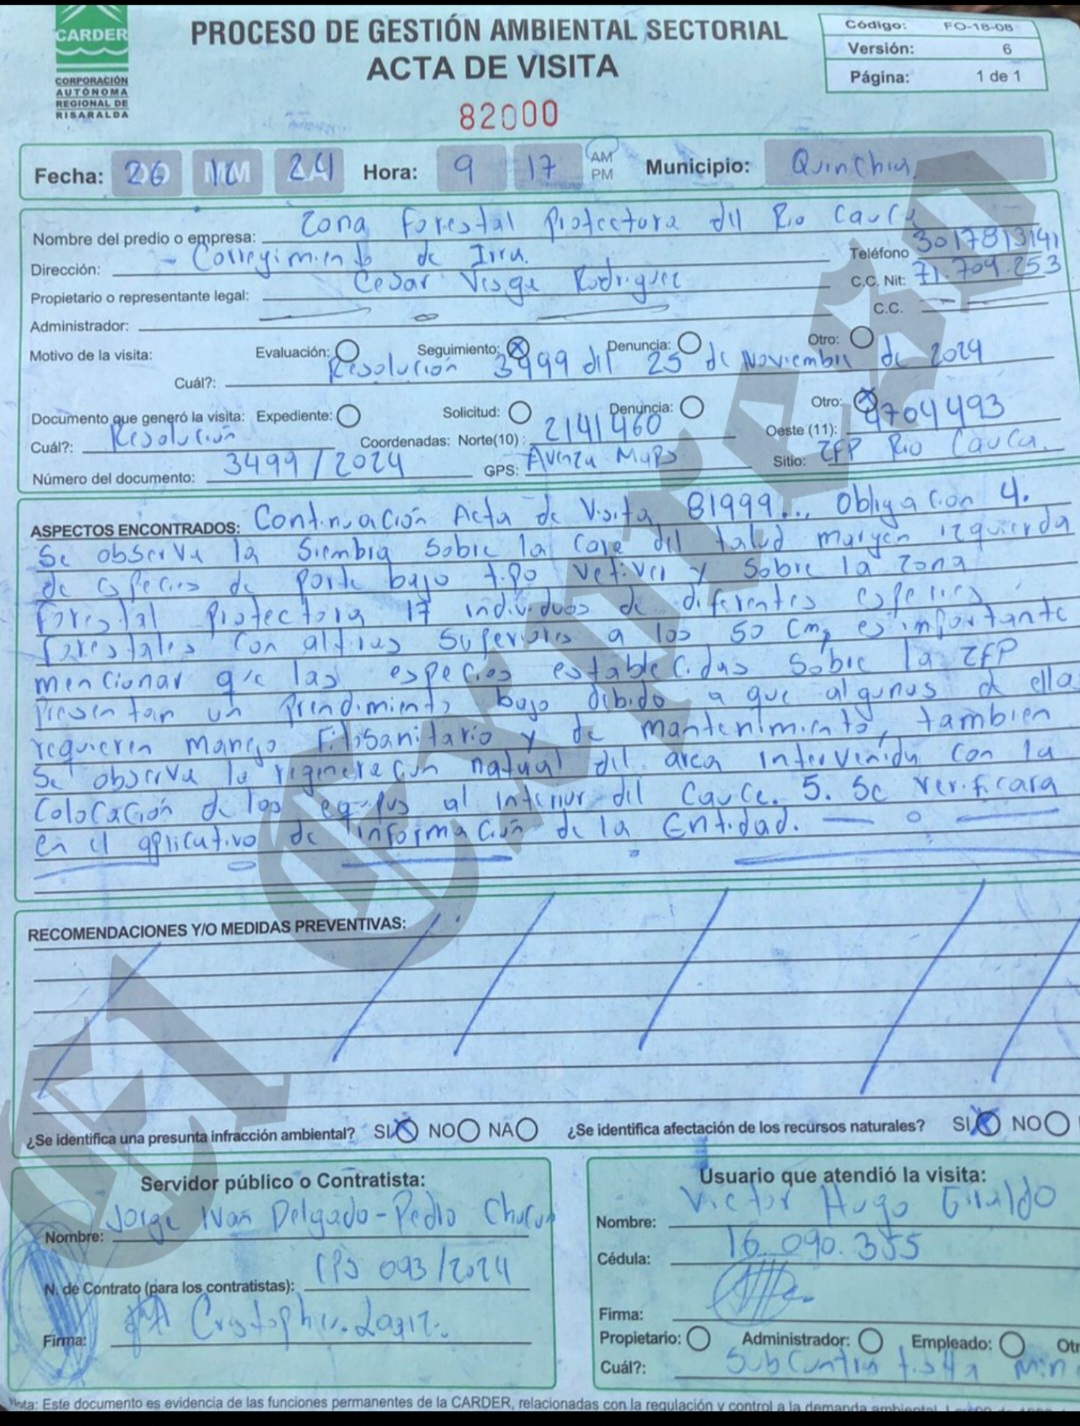 CARDER
CORPORACIÓN
AUTÓNOMA
REGIONAL DE
RISARALDA
PROCESO DE GESTIÓN AMBIENTAL SECTORIAL
ACTA DE VISITA
82000
Código: FO-18-08
Versión: 6
Página: 1 de 1
Fecha: 26 24 Hora: 9 17 AM PM Municipio: Quinchia
Nombre del predio o empresa: Zona Forestal Protectora del Rio Cauca
Dirección: - Corregimiento de Irra. Teléfono 3017813141
Propietario o representante legal: Cesar Rodriguez C.C. Nit: 71.709.253
Administrador: C.C.
Motivo de la visita: Evaluación: Seguimiento: X Denuncia: Otro:
Cuál?: Resolución 3499 del 25 de Noviembre de 2024
Documento que generó la visita: Expediente: Solicitud: Denuncia: Otro: X
Cuál?: Resolución Coordenadas: Norte(10): 2141460 Oeste (11): 4704493
Número del documento: 3499/2024 GPS: Avenza Maps Sitio: ZFP Rio Cauca.
ASPECTOS ENCONTRADOS: Continuación Acta de Visita 81999... Obligación 4.
Se observa la Siembra Sobre la del talud margen izquierda
de especies de porte bajo tipo vetiver y Sobre la Zona
Forestal Protectora 17 individuos de diferentes especies
Forestales con alturas Superiores a los 50 cm, es importante
mencionar que las especies establecidas Sobre la ZFP
Presentan un Prendimiento bajo debido a que algunos d ella
requieren manejo Fitosanitario y de mantenimiento, tambien
Se observa la regeneración natual del area intervenida con la
Colocación de los equipos al interior del Cauce. 5. Se verificara
en el aplicativo de información de la Entidad.
RECOMENDACIONES Y/O MEDIDAS PREVENTIVAS:
¿Se identifica una presunta infracción ambiental? SI X NO NA ¿Se identifica afectación de los recursos naturales? SI X NO
Servidor público o Contratista:
Nombre: Jorge Ivan Delgado - Pedro
N. de Contrato (para los contratistas): CPS 093/2024
Firma:
Usuario que atendió la visita:
Nombre: Victor Hugo Giraldo
Cédula: 16.090.355
Firma:
Propietario: Administrador: Empleado: Otr
Cuál?: Subcontratista Min
Nota: Este documento es evidencia de las funciones permanentes de la CARDER, relacionadas con la regulación y control a la demanda ambiental
El Expreso